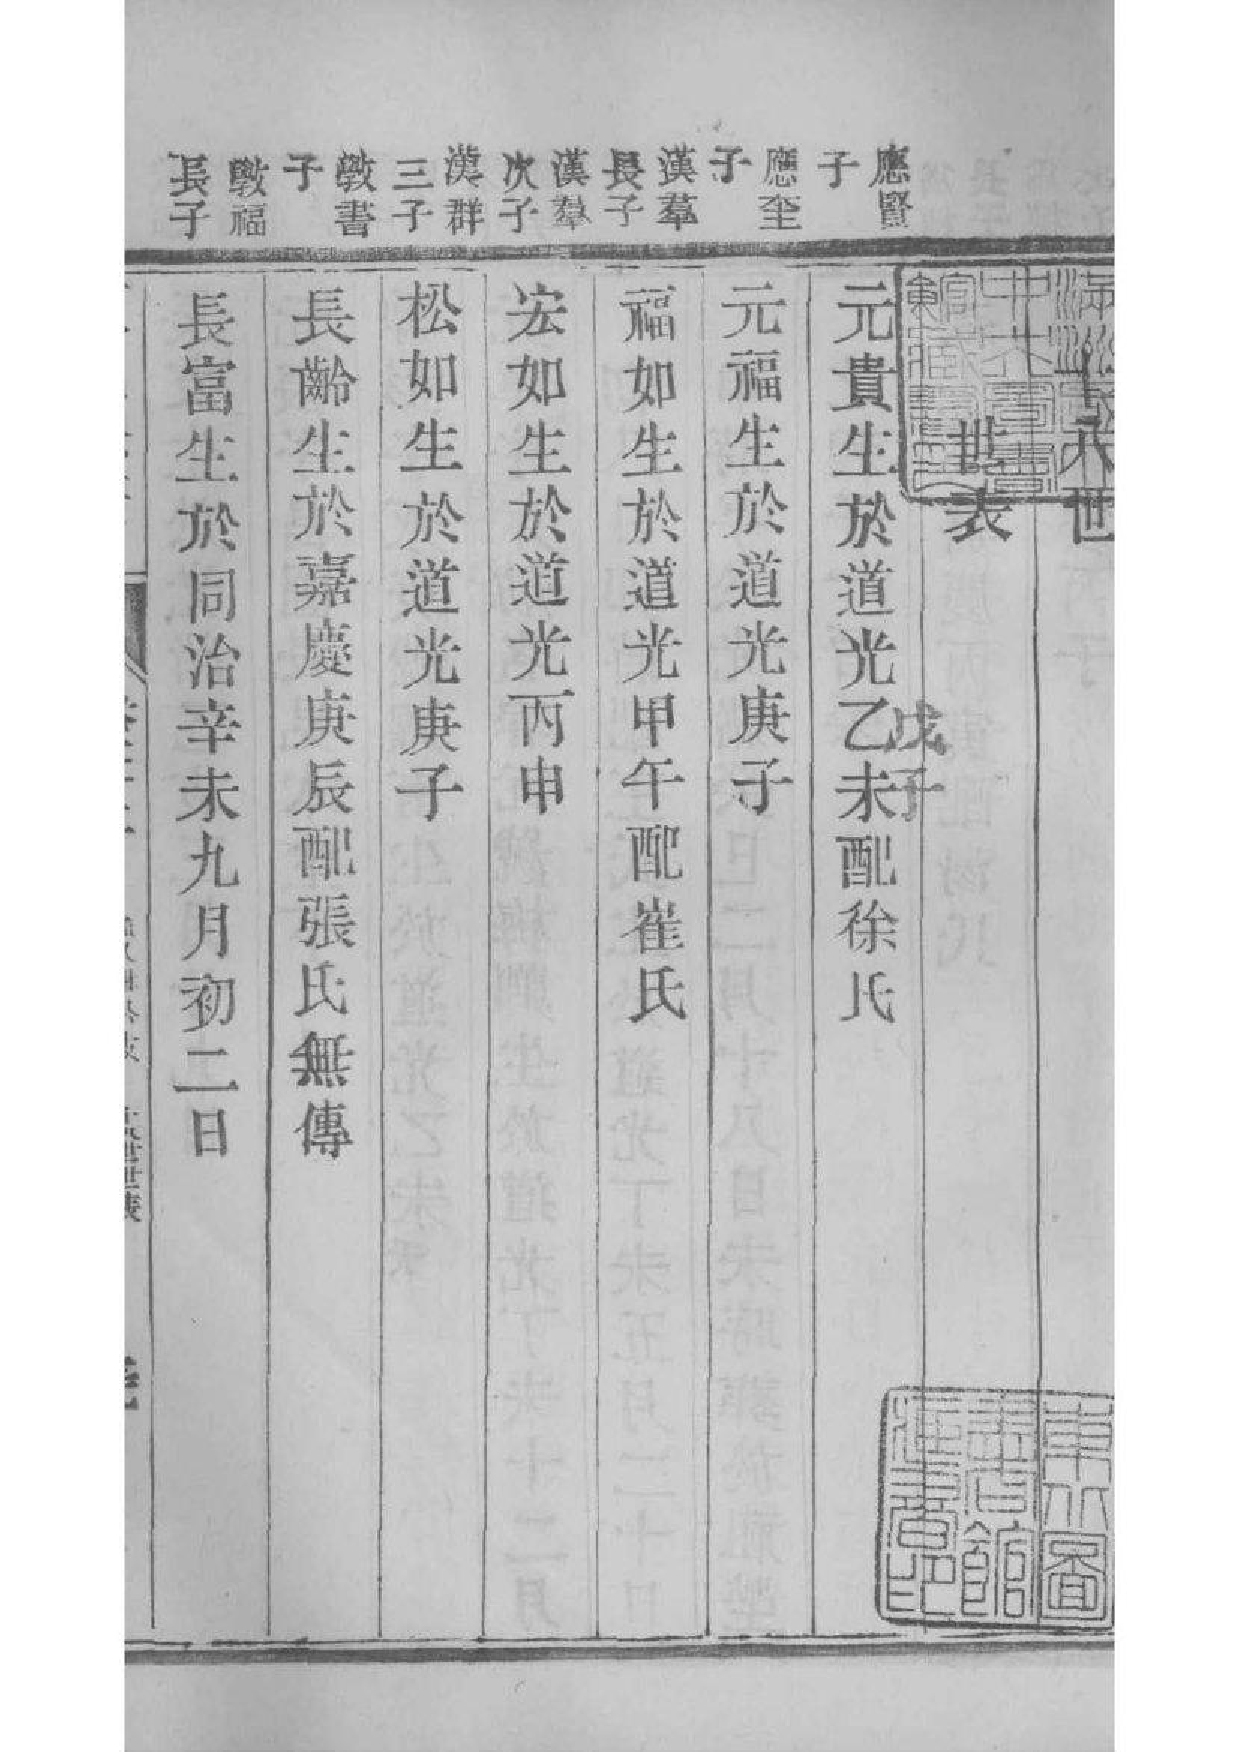 十八世
世表
應賢子
元貴生於道光乙未配徐氏
戊子
應奎子
元福生於道光庚子
漢羣長子
福如生於道光甲午配崔氏
漢羣次子
宏如生於道光丙申
漢群三子
松如生於道光庚子
斆書子
長齡生於嘉慶庚辰配張氏無傳
斆福長子
長富生於同治辛未九月初二日
十八世世表
東北圖書館所藏善本